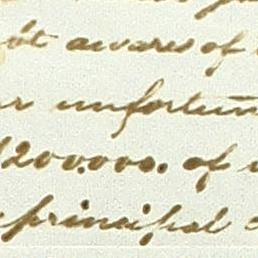 awares of
unfortun
1200.000. of
principal